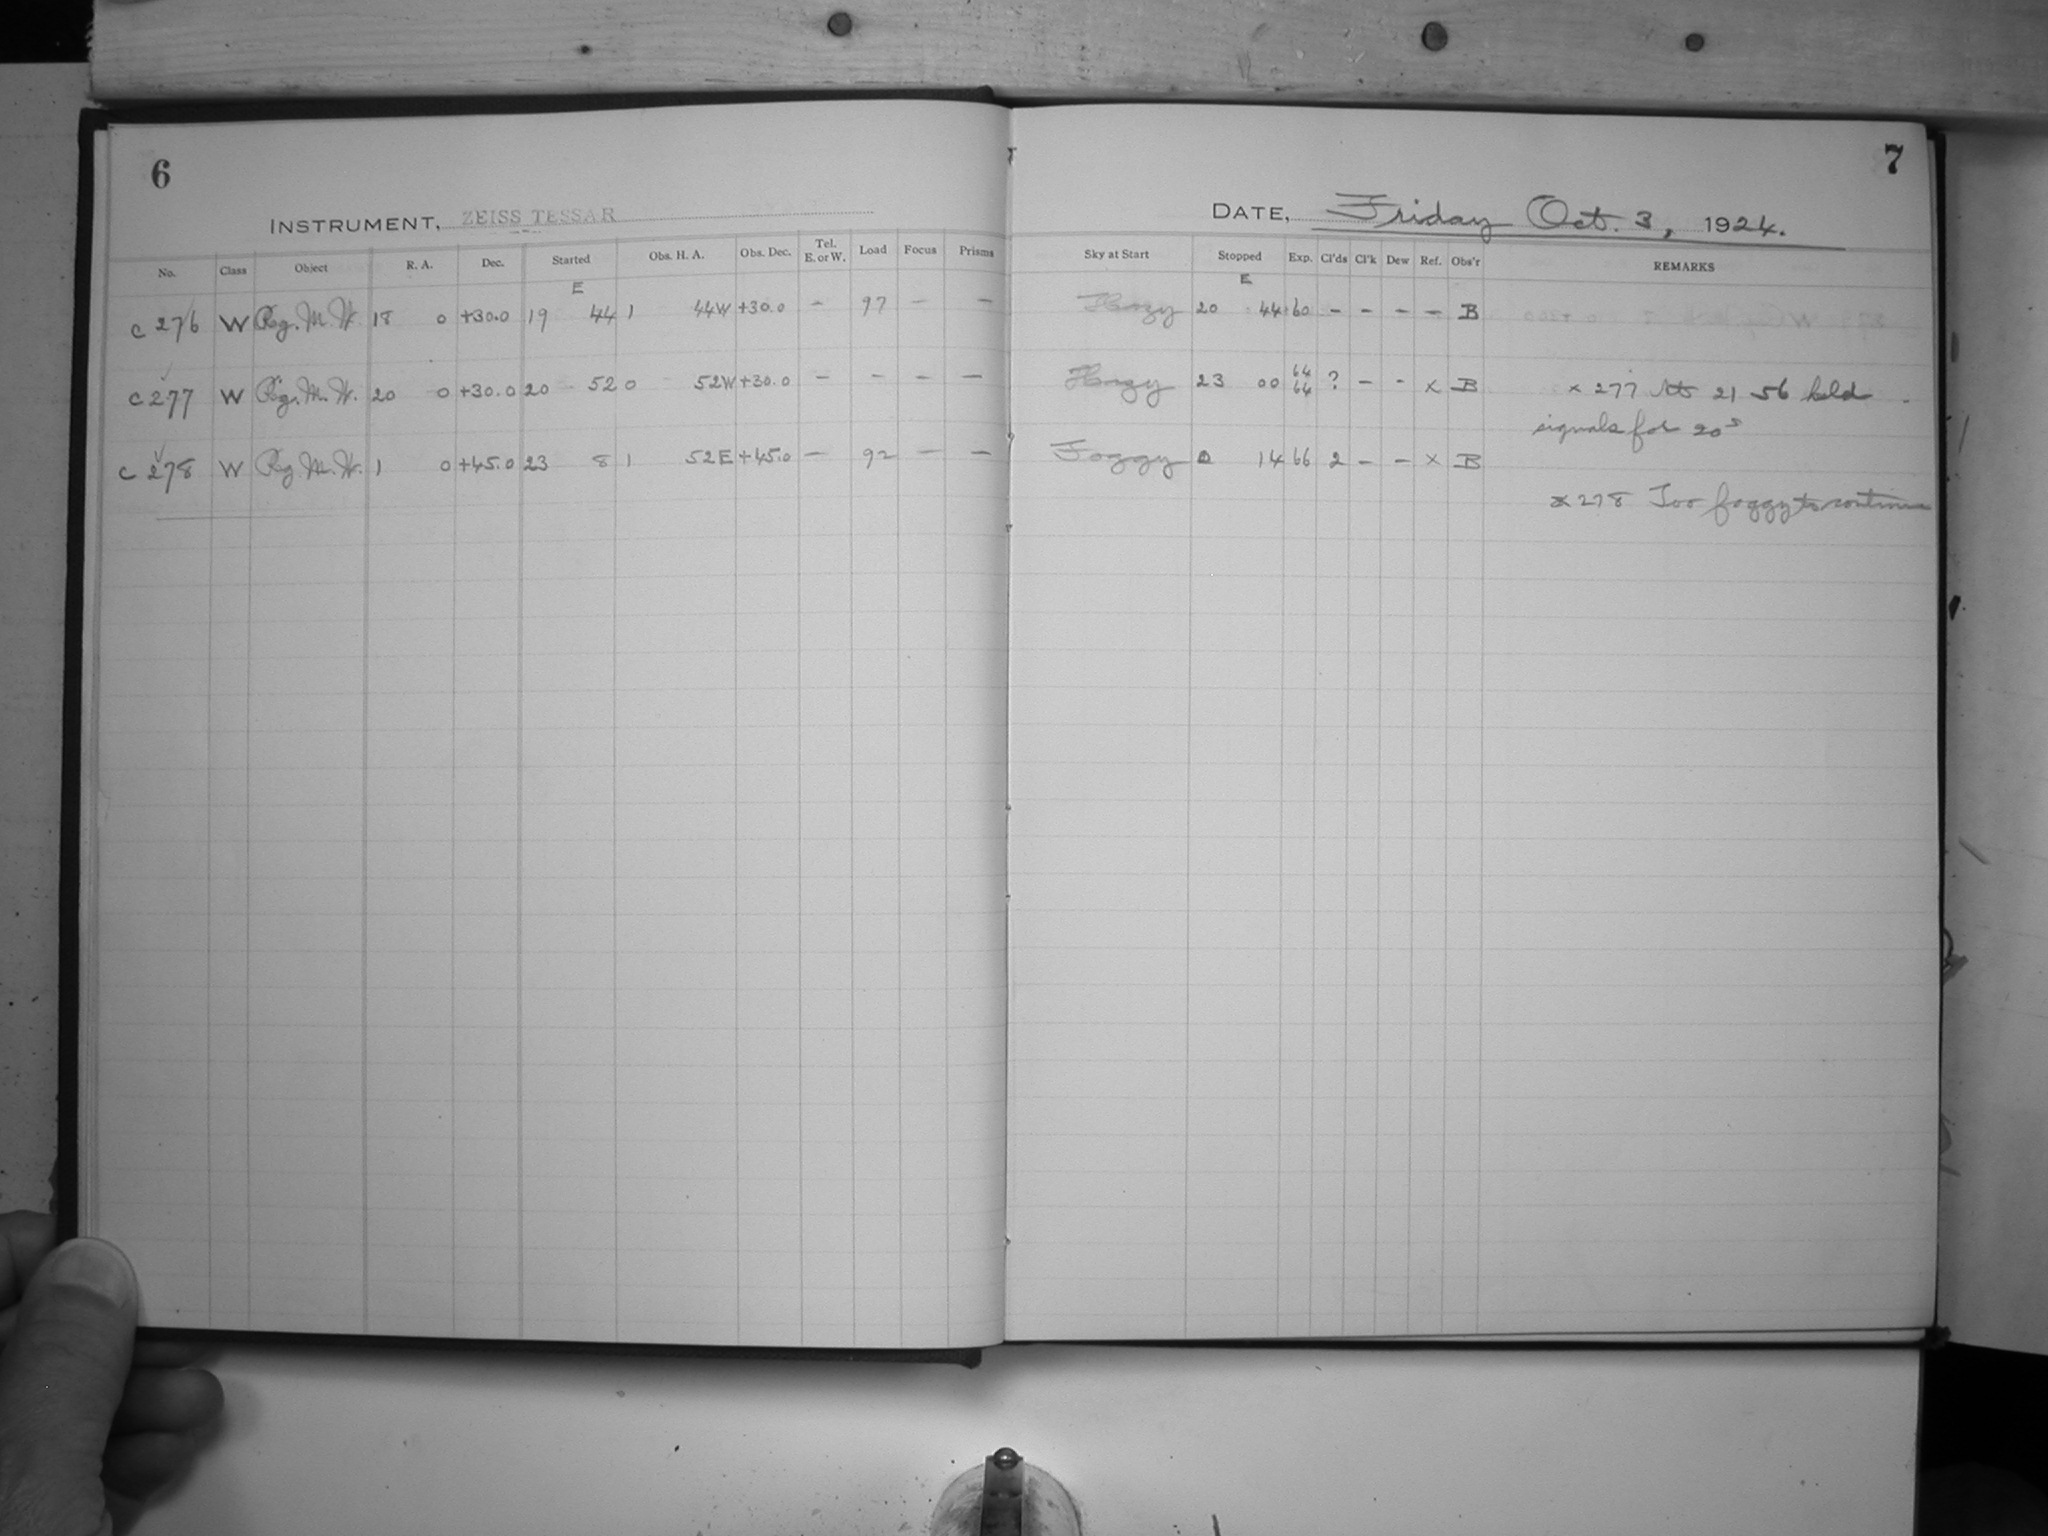 6
INSTRUMENT, ZEISS TESSAR
No. Class Object R. A. Dec. Started Obs. H. A. Obs. Dec. Tel. E. or W. Load Focus Prisms
E
c 276 W Rg. M. W. 18 0 +30.0 19 44 1 44W +30.0 – 97 – –
c 277 W Rg. M. W. 20 0 +30.0 20 52 0 52W +30.0 – – – –
c 278 W Rg. M. W. 1 0 +45.0 23 8 1 52E +45.0 – 92 – –
7
DATE, Friday Oct. 3, 1924.
Sky at Start Stopped Exp. Cl'ds Cl'k Dew Ref. Obs'r REMARKS
E
Hazy 20 44 60 – – – – B
Hazy 23 00 64 64 ? – - x B x 277 At 21 56 held
signals for 20s
Foggy 0 14 66 2 – – x B
x 278 Too foggy to continue